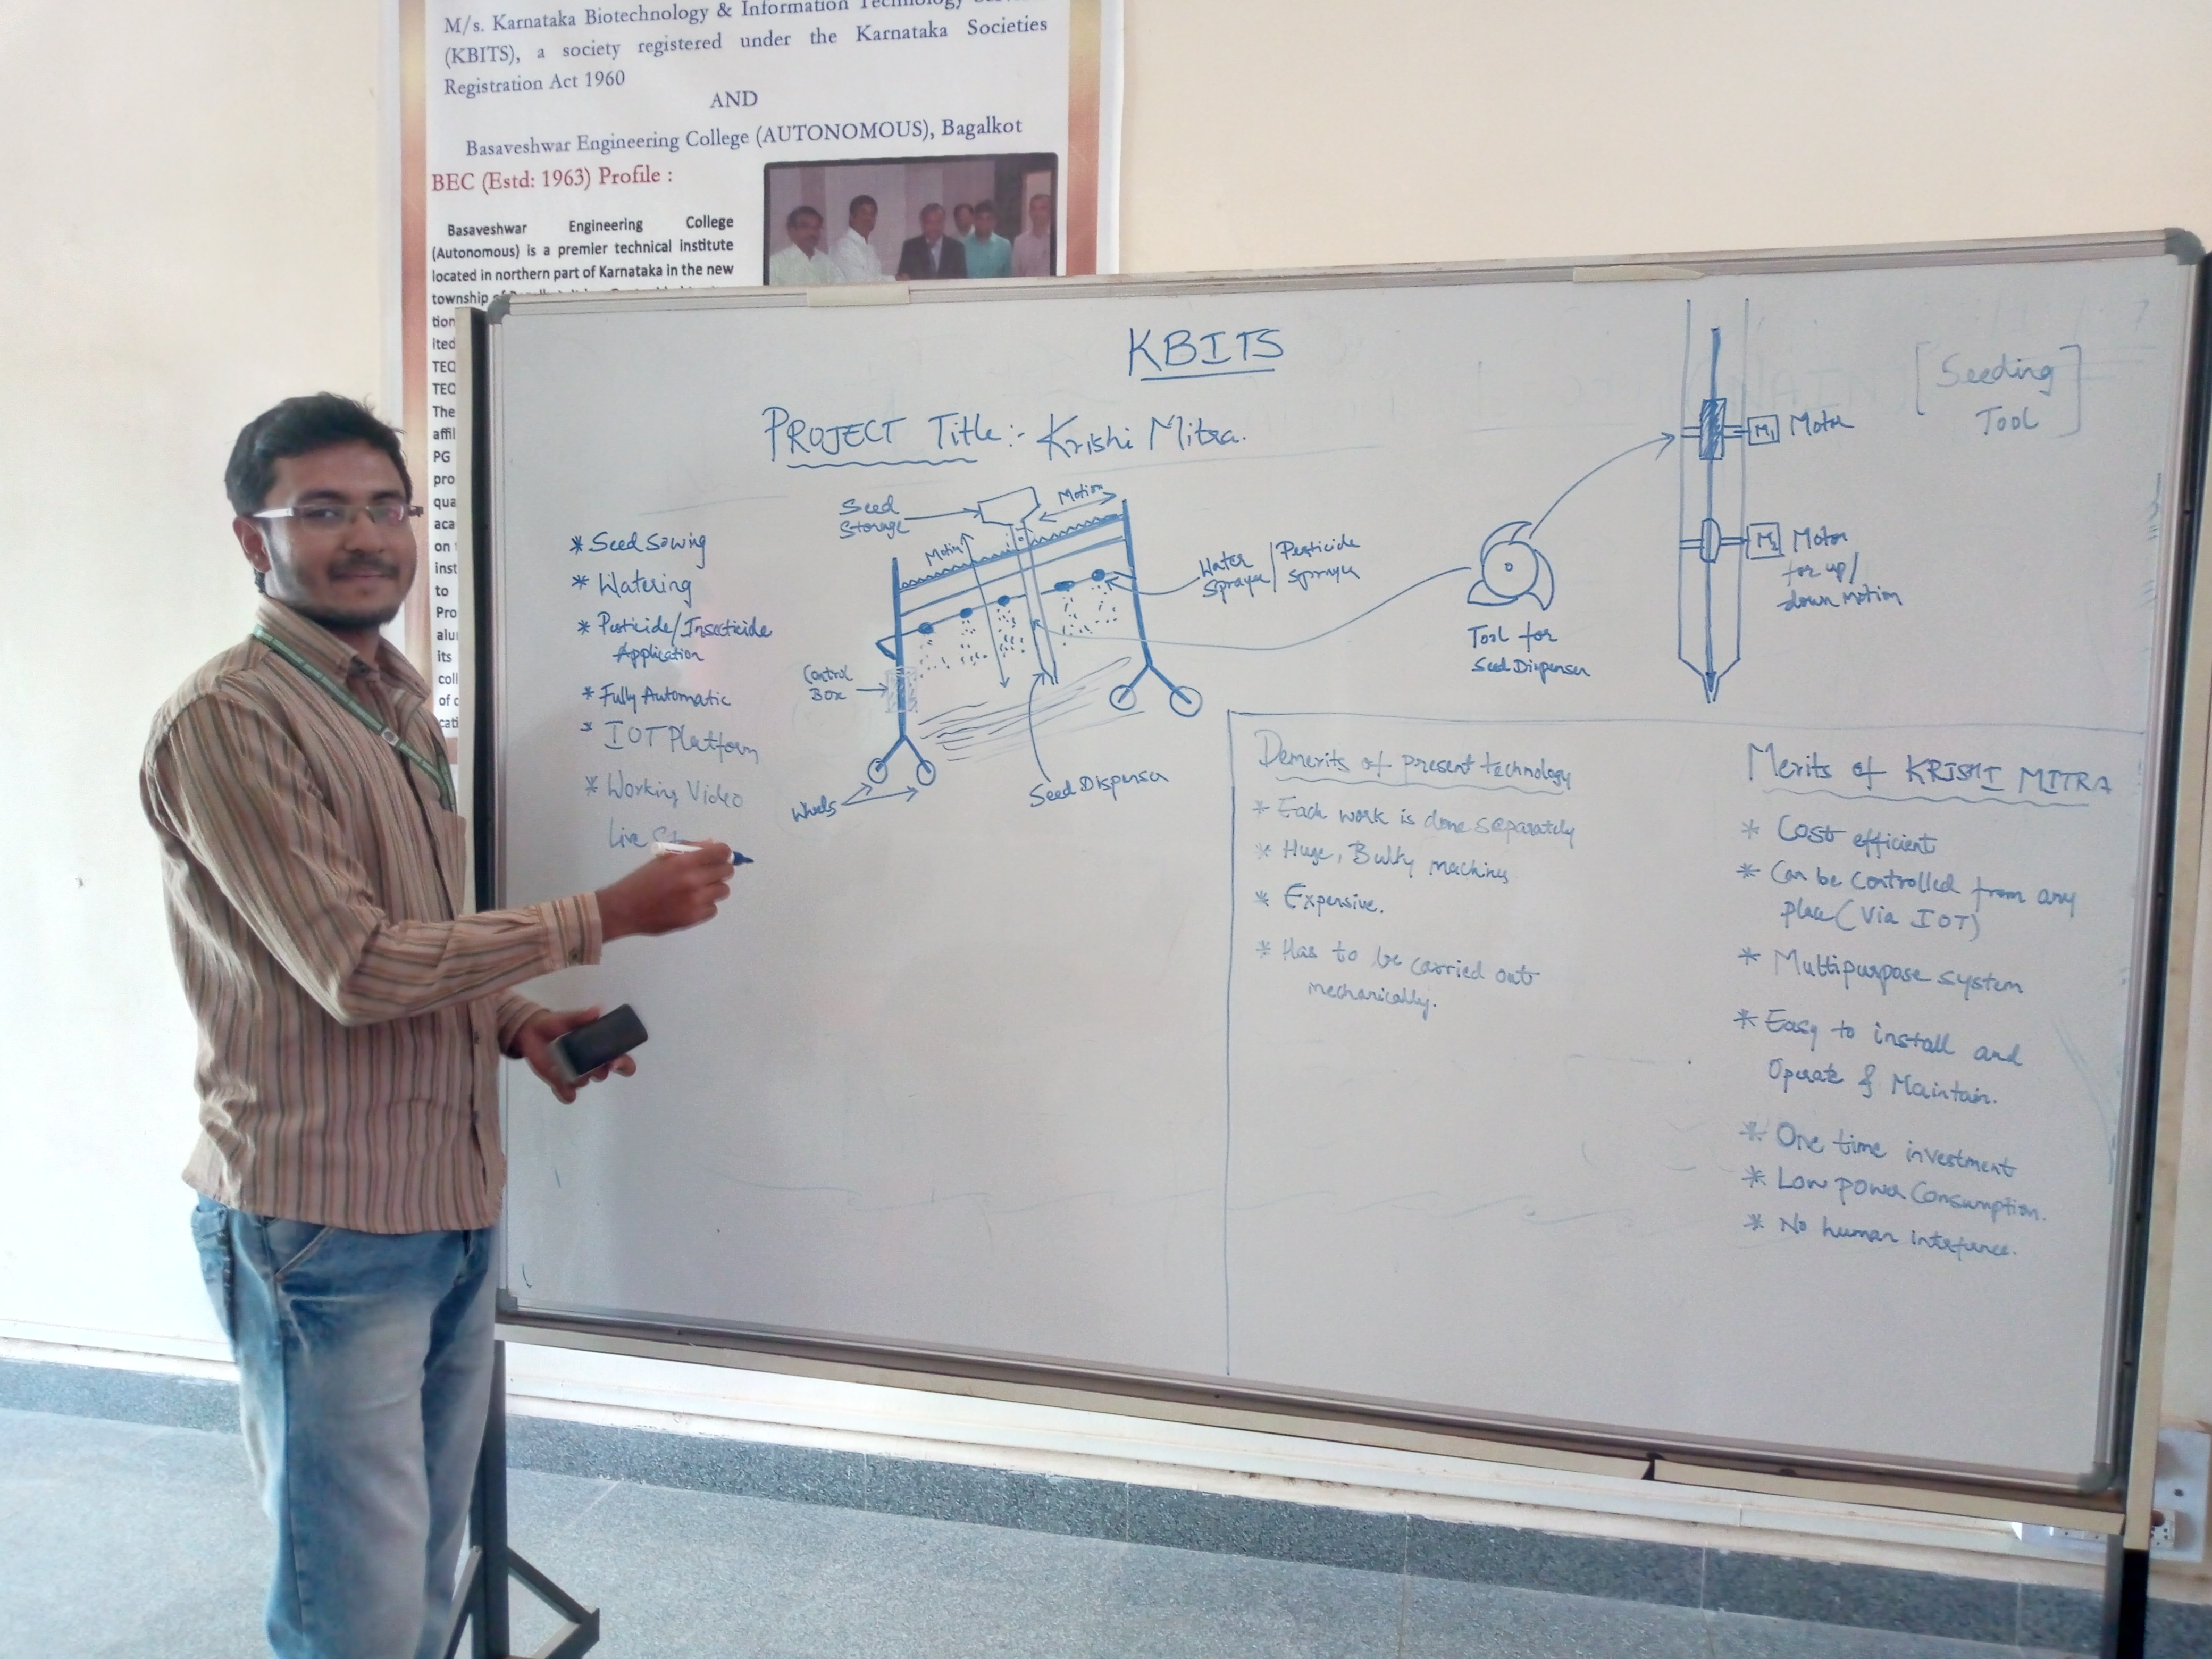 M/s. Karnataka Biotechnology & Information Technology
(KBITS), a society registered under the Karnataka Societies
Registration Act 1960
AND
Basaveshwar Engineering College (AUTONOMOUS), Bagalkot
BEC (Estd: 1963) Profile :
Basaveshwar Engineering College
(Autonomous) is a premier technical institute
located in northern part of Karnataka in the new
township
KBITS
PROJECT Title :- Krishi Mitra.
* Seed Sowing
* Watering
* Pesticide/Insecticide
Application
* Fully Automatic
* IOT Platform
* Working Video
Live
Seed
Storage
Motion
Motion
Water
Sprayer/
Pesticide
Sprayer
Control
Box
Wheels
Seed Dispenser
Tool for
Seed Dispenser
M1 Motor
M2 Motor
for up/
down motion
[Seeding
Tool]
Demerits of present technology
* Each work is done separately
* Huge, Bulky machines
* Expensive.
* Has to be carried out
mechanically.
Merits of KRISHI MITRA
* Cost efficient
* Can be controlled from any
place (Via IOT)
* Multipurpose system
* Easy to install and
Operate & Maintain.
* One time investment
* Low power Consumption.
* No human interfrence.